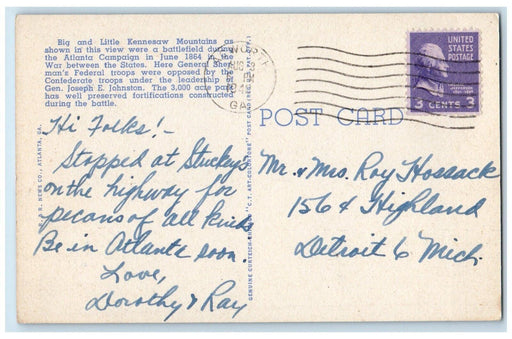 Big and Little Kennesaw Mountains as
shown in this view were a battlefield during
the Atlanta Campaign in June 1864 in the
War between the States. Here General Sher-
man's Federal troops were opposed by the
Confederate troops under the leadership of
Gen. Joseph E. Johnston. The 3,000 acre park
has well preserved fortifications constructed
during the battle.
Hi Folks! -
Stopped at Stuckeys
on the highway for
pecans of all kinds
Be in Atlanta soon
Love,
Dorothy & Ray
R. NEWS CO., ATLANTA, GA.
GENUINE CURTEICH-CHICAGO "C.T. ART-COLORTONE" POST CARD
GA.
UNITED
STATES
POSTAGE
3 CENTS 3
POST CARD
Mr. & Mrs. Roy Hossack
1564 Highland
Detroit 6 Mich.